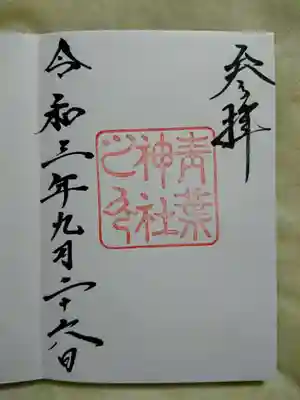 奉拝
青葉
神社
之印
令和三年九月二十六日